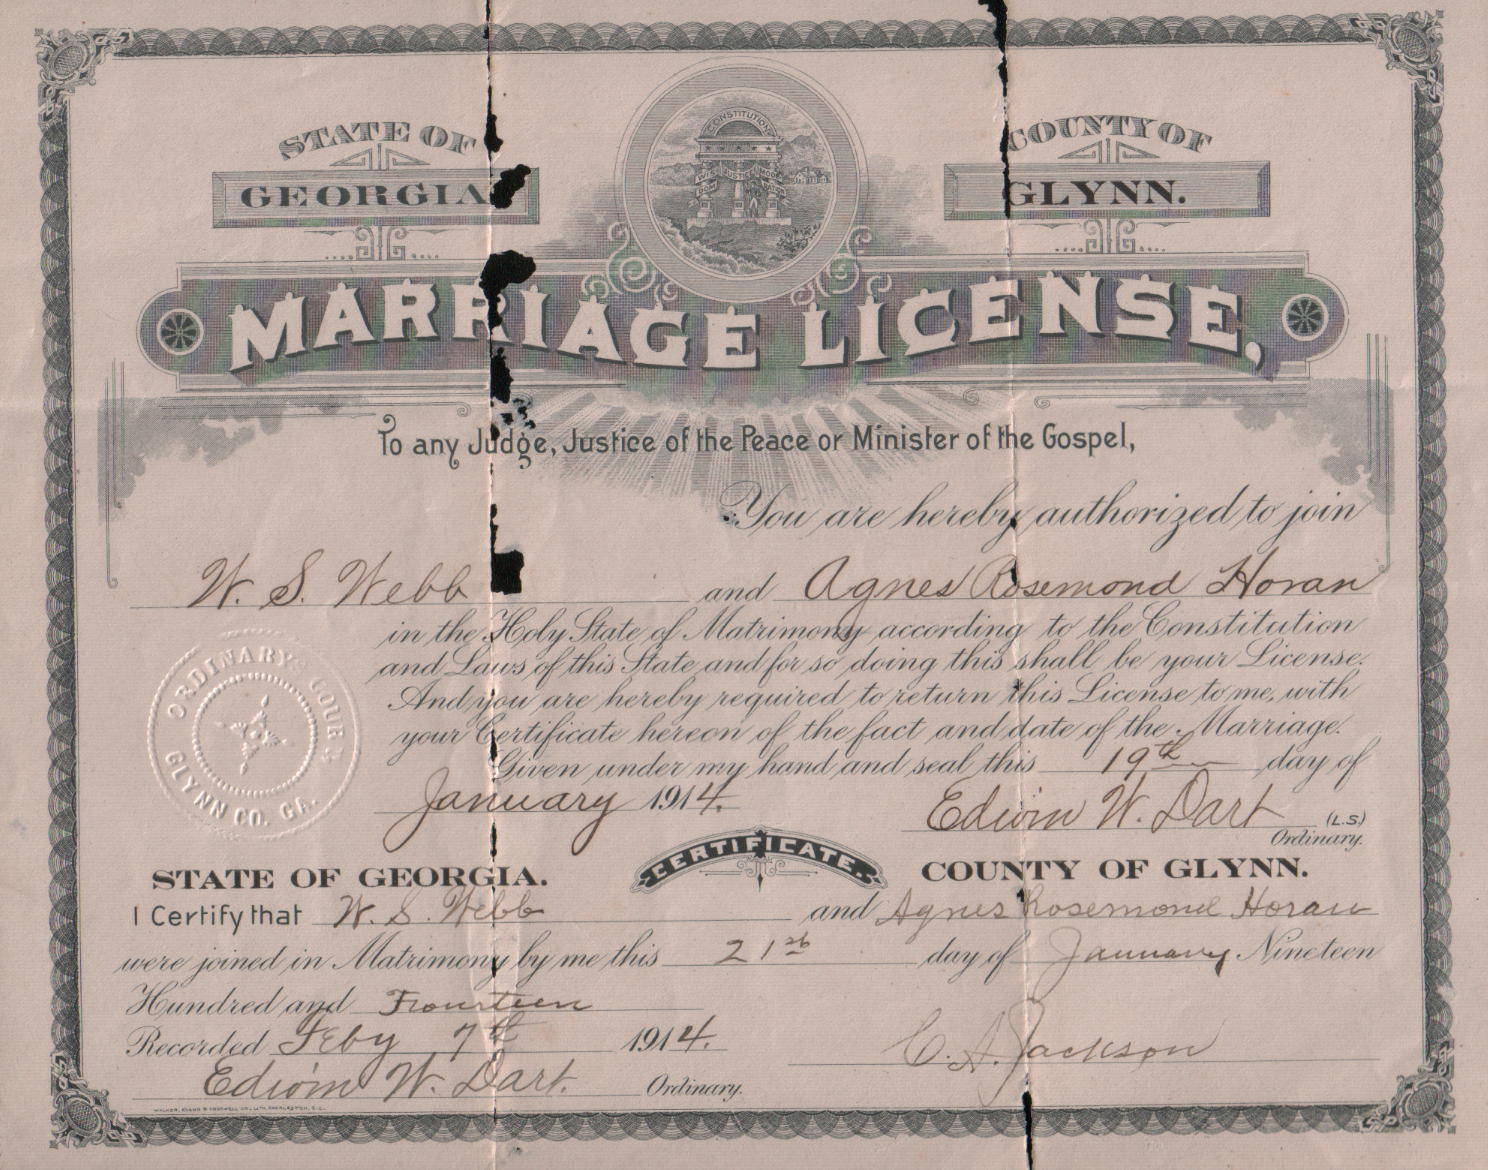 STATE OF
GEORGIA
CONSTITUTION
COUNTY OF
GLYNN.
MARRIAGE LICENSE,
To any Judge, Justice of the Peace or Minister of the Gospel,
You are hereby authorized to join
W. S. Webb and Agnes Rosemond Horan
in the Holy State of Matrimony according to the Constitution
and Laws of this State and for so doing this shall be your License.
And you are hereby required to return this License to me, with
your Certificate hereon of the fact and date of the Marriage.
Given under my hand and seal this 19th day of
January 1914. Edwin W. Dart (L.S.)
Ordinary.
ORDINARY COURT
GLYNN CO. GA.
CERTIFICATE.
STATE OF GEORGIA. COUNTY OF GLYNN.
I Certify that W. S. Webb and Agnes Rosemond Horan
were joined in Matrimony by me this 21st day of January Nineteen
Hundred and Fourteen
Recorded Feby 7th 1914. C. A. Jackson
Edwin W. Dart. Ordinary.
WALKER, EVANS & COGSWELL CO., LITH. CHARLESTON, S.C.